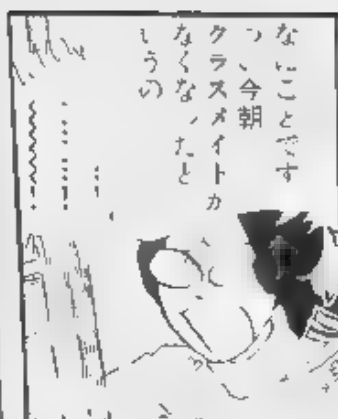 なにことです
つい今朝
クラスメイトが
なくなったと
いうの